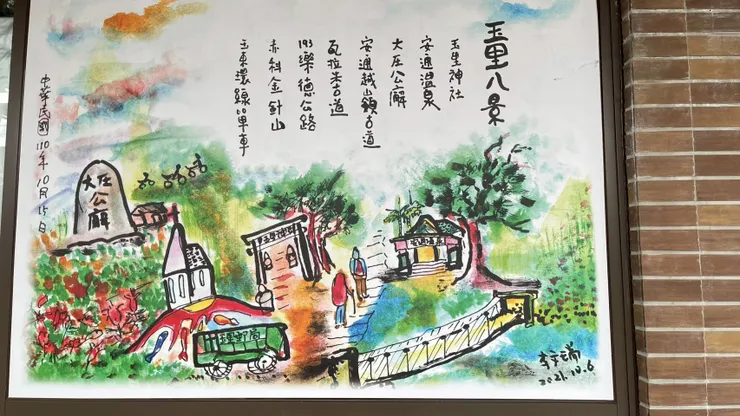 玉里八景
玉里神社
安通溫泉
大庄公廨
安通越嶺古道
瓦拉米古道
193樂德公路
赤科金針山
玉東環線心單車
中華民國110年10月15日
大庄公廨
2021.10.6